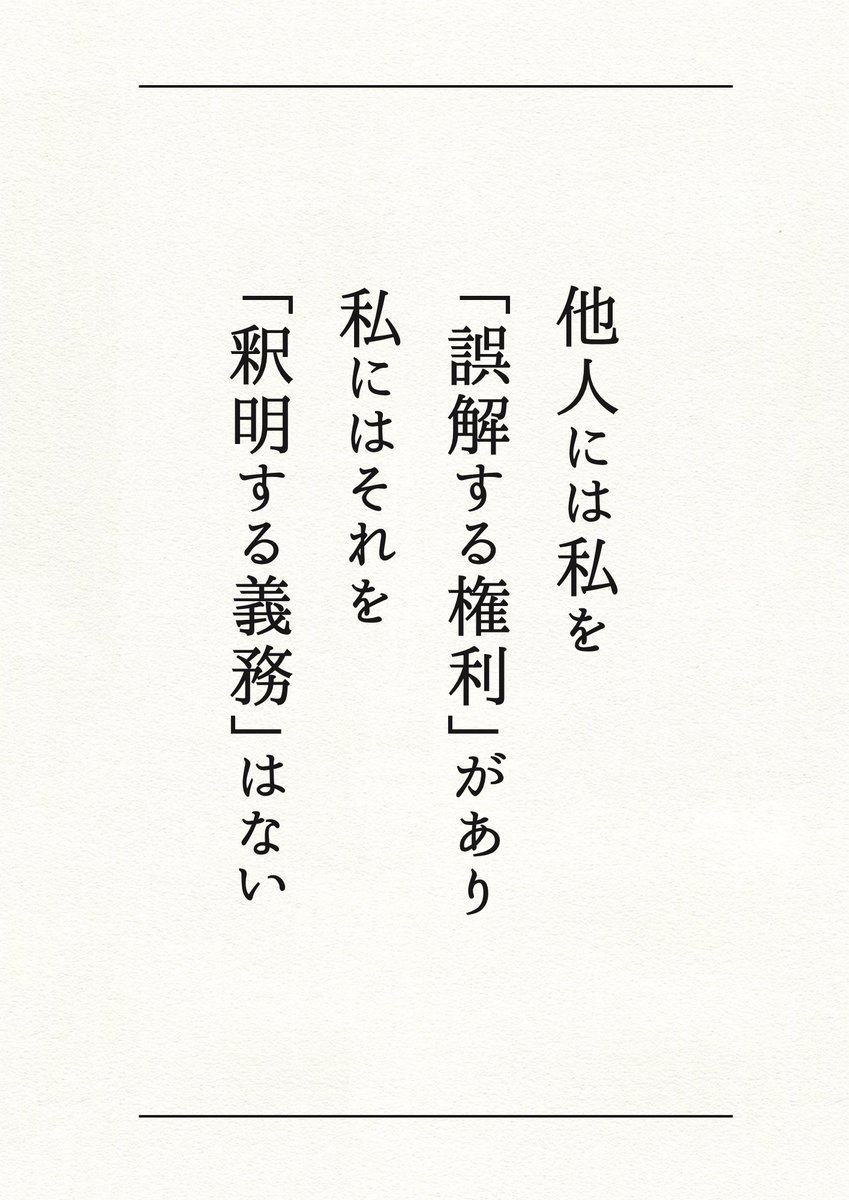 他人には私を
「誤解する権利」があり
私にはそれを
「釈明する義務」はない